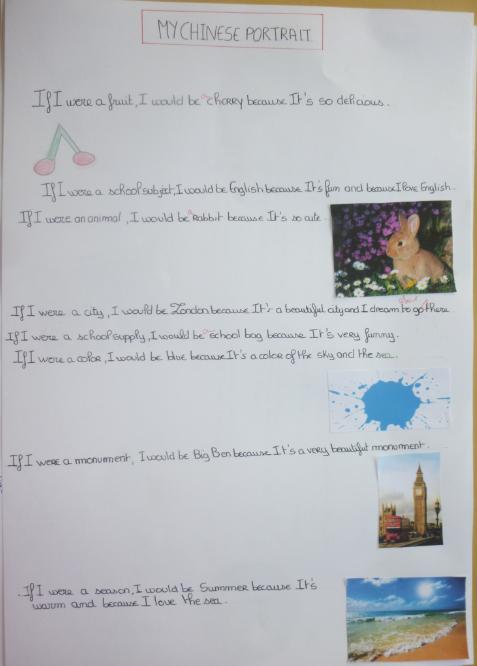 MY CHINESE PORTRAIT
If I were a fruit, I would be a chorry because It's so delicious.
If I were a school subject, I would be English because It's fun and because I love English.
If I were an animal, I would be a Rabbit because It's so cute.
If I were a city, I would be London because It's a beautiful city and I dream to go there
If I were a school supply, I would be a school bag because It's very funny.
If I were a color, I would be blue because It's a color of the sky and the sea.
If I were a monument, I would be Big Ben because It's a very beautiful monument.
If I were a season, I would be Summer because It's
warm and because I love the sea.